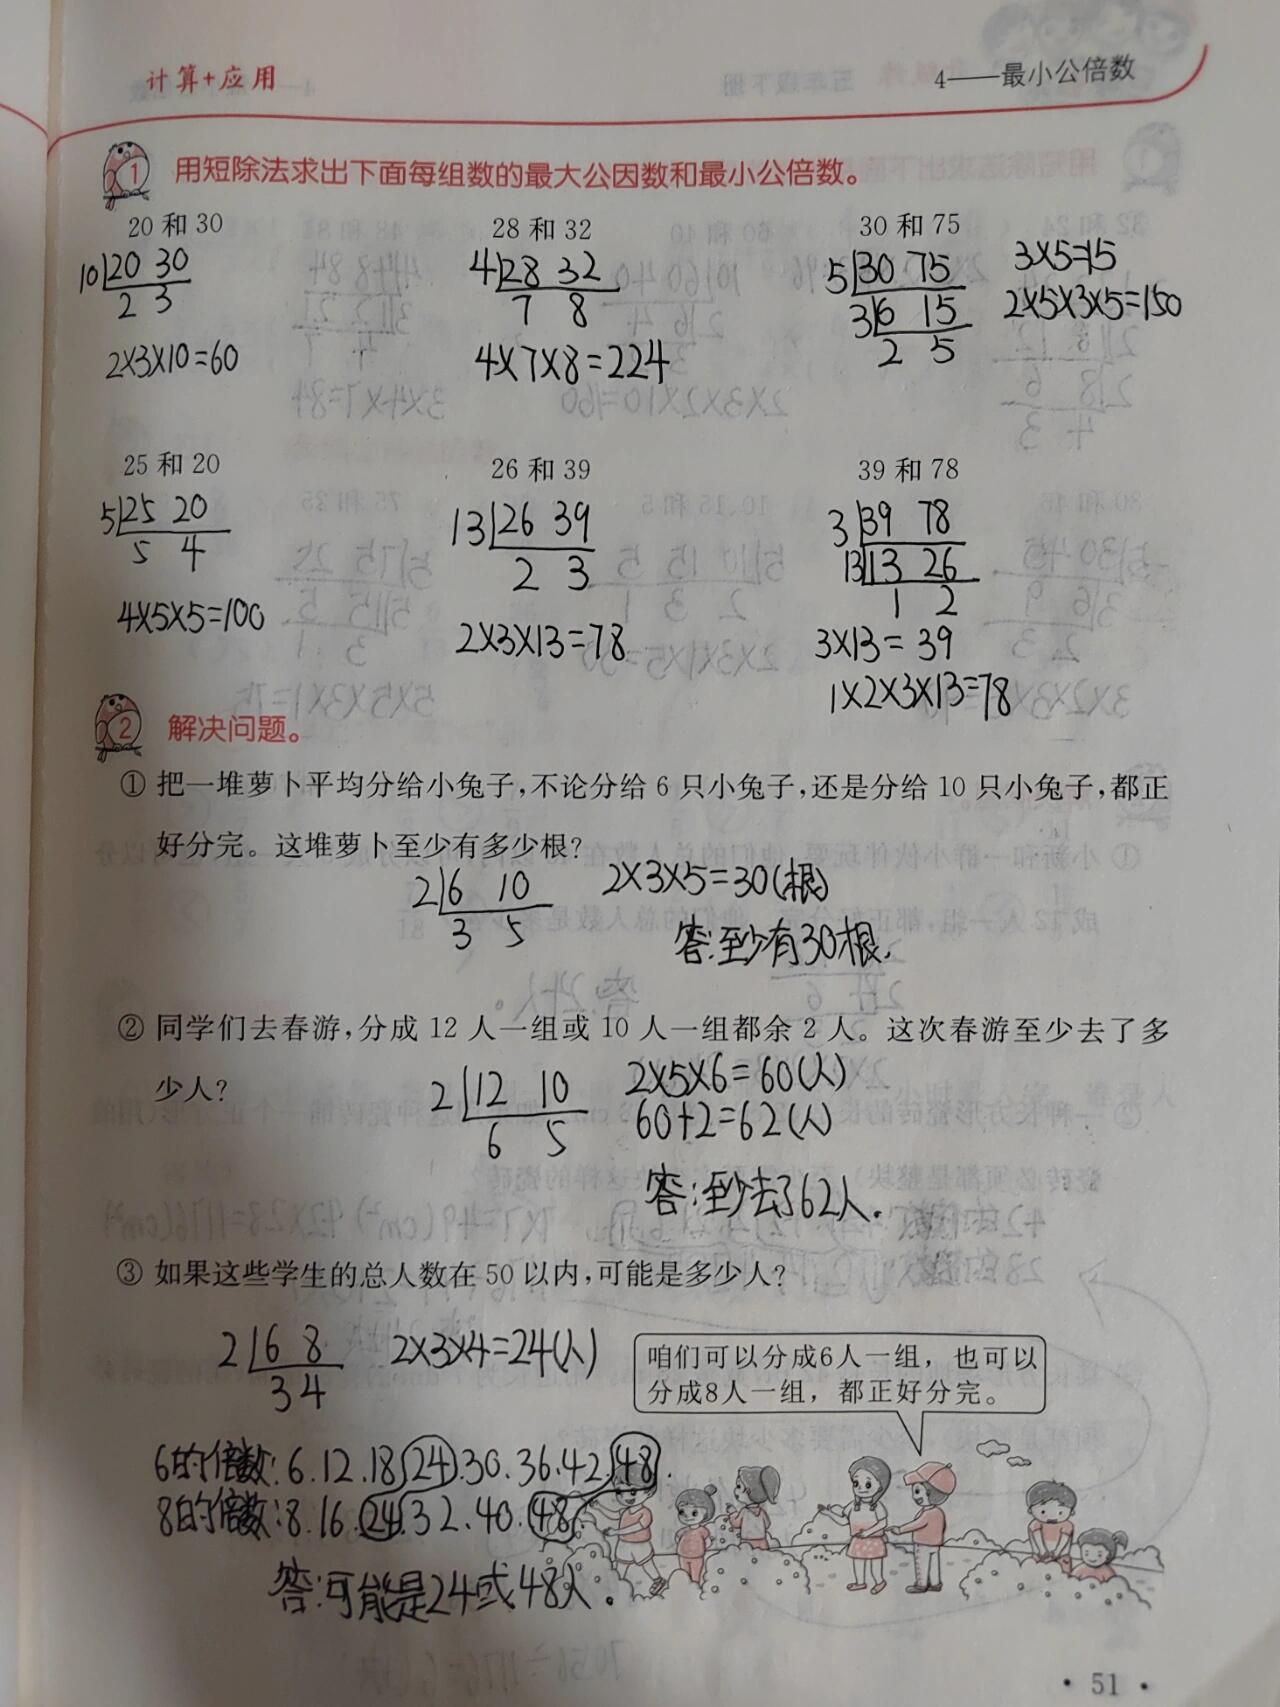 计算+应用
4——最小公倍数
1 用短除法求出下面每组数的最大公因数和最小公倍数。
20 和 30
10 20 30
2 3
2×3×10=60
28 和 32
4 28 32
7 8
4×7×8=224
30 和 75
5 30 75
3 6 15
2 5
3×5=15
2×5×3×5=150
25 和 20
5 25 20
5 4
4×5×5=100
26 和 39
13 26 39
2 3
2×3×13=78
39 和 78
3 39 78
13 13 26
1 2
3×13=39
1×2×3×13=78
2 解决问题。
① 把一堆萝卜平均分给小兔子,不论分给 6 只小兔子,还是分给 10 只小兔子,都正
好分完。这堆萝卜至少有多少根?
2 6 10
3 5
2×3×5=30(根)
答:至少有30根.
② 同学们去春游,分成 12 人一组或 10 人一组都余 2 人。这次春游至少去了多
少人?
2 12 10
6 5
2×5×6=60(人)
60+2=62(人)
答:至少去了62人.
③ 如果这些学生的总人数在 50 以内,可能是多少人?
2 6 8
3 4
2×3×4=24(人)
咱们可以分成6人一组，也可以
分成8人一组，都正好分完。
6的倍数:6.12.18.24.30.36.42.48.
8的倍数:8.16.24.32.40.48.
答:可能是24或48人.
· 51 ·